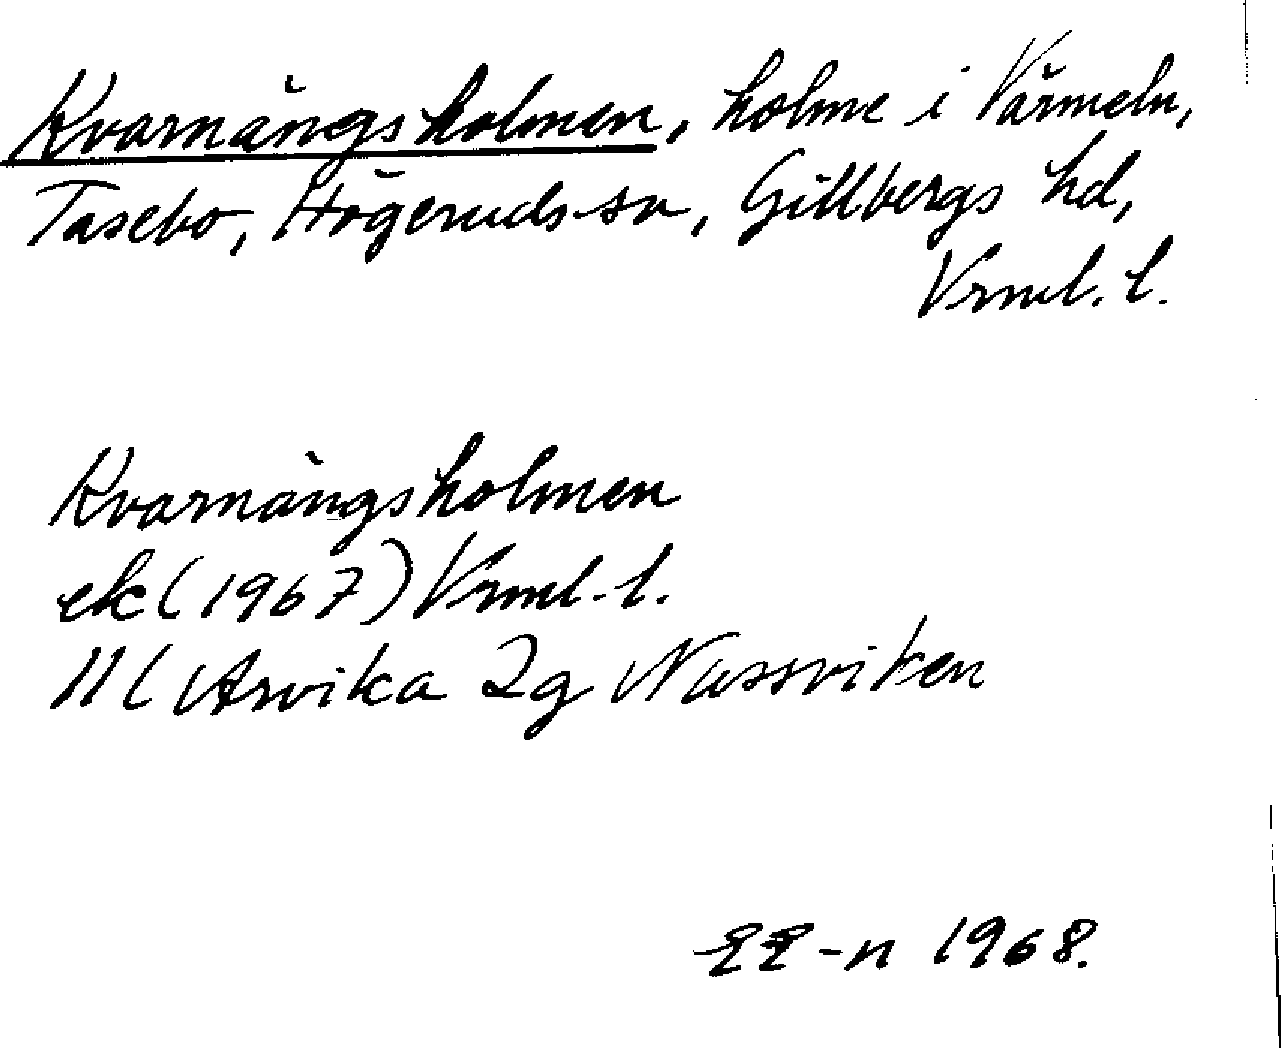 Kvarnängsholmen, holme i Värmeln,
Tasebo, Högeruds sn, Gillbergs hd,
Vrml. l.
Kvarnängsholmen
ek (1967) Vrml. l.
11C Arvika 2g Nussviken
EE-n 1968.